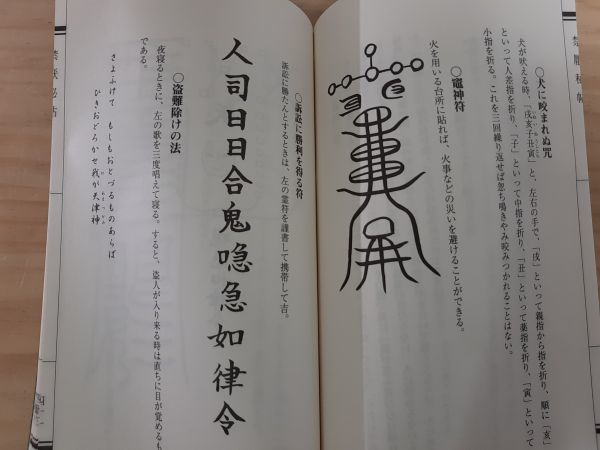 禁厭秘帖
○犬に咬まれぬ咒
犬が吠える時、「戌亥子丑寅」と、左右の手で、「戌」といって親指から指を折り、順に「亥」
といって人差指を折り、「子」といって中指を折り、「丑」といって薬指を折り、「寅」といって
小指を折る。これを三回繰り返せば忽ち鳴きやみ咬みつかれることはない。
○竈神符
火を用いる台所に貼れば、火事などの災いを避けることができる。
○訴訟に勝利を得る符
訴訟に勝たんとするときは、左の霊符を謹書して携帯して吉。
人司日日合鬼喼急如律令
○盗難除けの法
夜寝るときに、左の歌を三度唱えて寝る。すると、盗人が入り来る時は直ちに目が覚めるも
である。
さよふけて もしもおとづるものあらば
ひきおどろかせ我が天津神